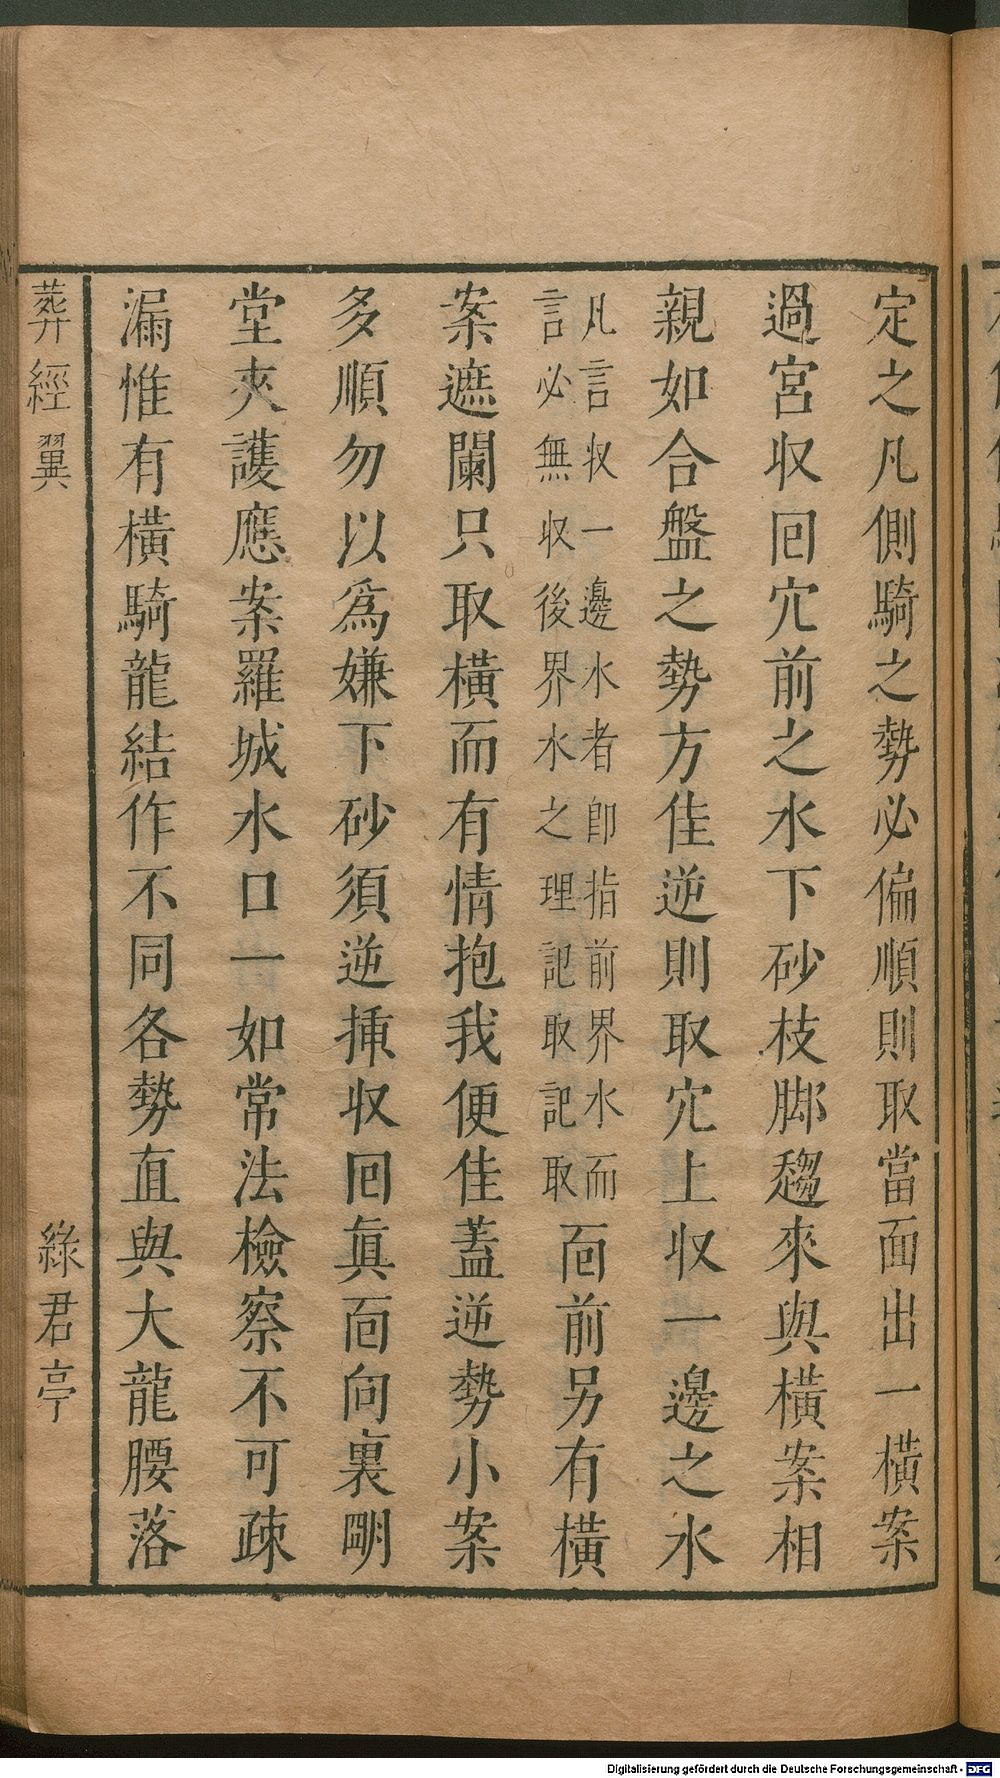 定之凡側騎之勢必偏順則取當面出一橫案
過宮収囘穴前之水下砂枝脚趨來與橫案相
親如合盤之勢方佳逆則取穴上収一邊之水
凡言収一邊水者卽指前界水而
言必無収後界水之理記取記取
靣前另有橫
案遮闌只取橫而有情抱我便佳蓋逆勢小案
多順勿以爲嫌下砂須逆揷収囘眞靣向裏明
堂夾護應案羅城水口一如常法檢察不可疎
漏惟有橫騎龍結作不同各勢直與大龍腰落
葬經翼
綠君亭
Digitalisierung gefördert durch die Deutsche Forschungsgemeinschaft - DFG